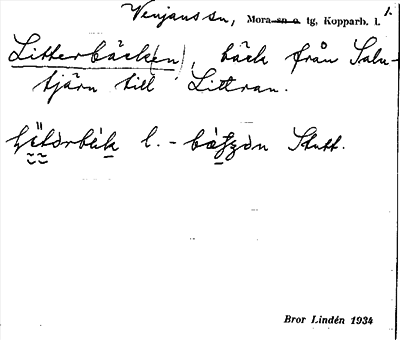 1.
Venjans sn, Mora sn o. tg, Kopparb. l.
Litterbäck(en), bäck från Salu-
tjärn till Littran.
l. - Stutt.
Bror Lindén 1934